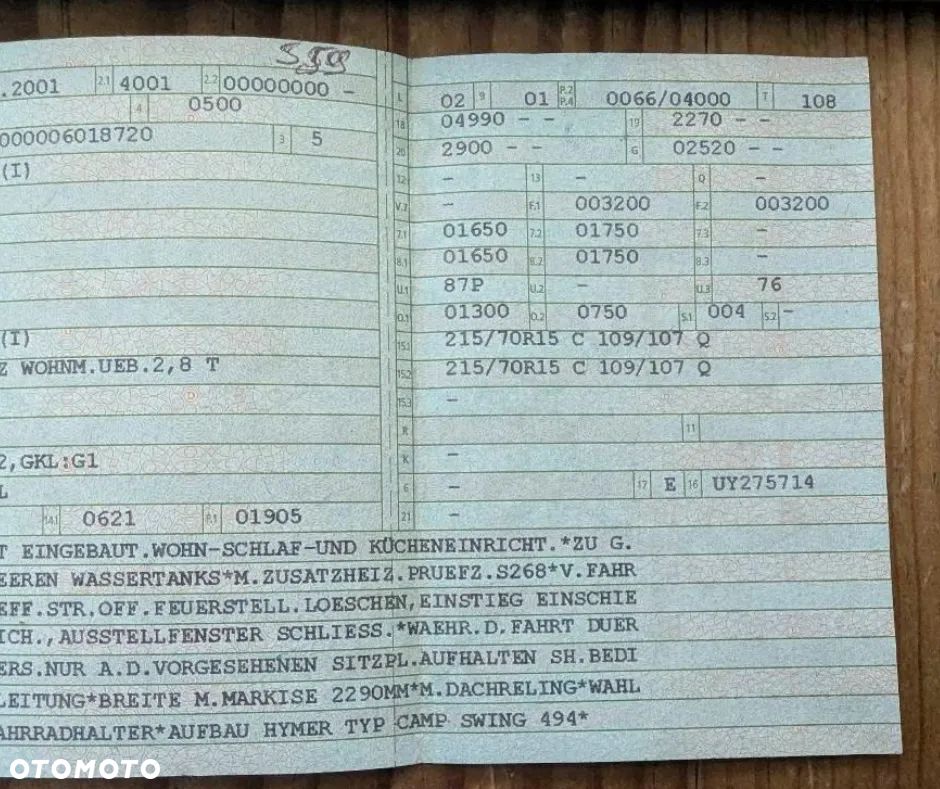 .2001 2.1 4001 2.2 00000000 -
L 02 9 01 P.2 P.4 0066/04000 T 108
4 0500
18 04990 - - 19 2270 - -
000006018720 3 5
20 2900 - - G 02520 - -
(I)
12 - 13 - Q -
V.7 - F.1 003200 F.2 003200
7.1 01650 7.2 01750 7.3 -
8.1 01650 8.2 01750 8.3 -
U.1 87P U.2 - U.3 76
O.1 01300 O.2 0750 S.1 004 S.2 -
(I)
15.1 215/70R15 C 109/107 Q
Z WOHNM.UEB.2,8 T
15.2 215/70R15 C 109/107 Q
15.3 -
R 11
2,GKL:G1
K -
L
6 - 17 E 16 UY275714
14.1 0621 P.1 01905
21 -
T EINGEBAUT.WOHN-SCHLAF-UND KÜCHENEINRICHT.*ZU G.
EEREN WASSERTANKS*M.ZUSATZHEIZ.PRUEFZ.S268*V.FAHR
EFF.STR.OFF.FEUERSTELL.LOESCHEN,EINSTIEG EINSCHIE
ICH.,AUSSTELLFENSTER SCHLIESS.*WAEHR.D.FAHRT DUER
ERS.NUR A.D.VORGESEHENEN SITZPL.AUFHALTEN SH.BEDI
LEITUNG*BREITE M.MARKISE 2290MM*M.DACHRELING*WAHL
AHRRADHALTER*AUFBAU HYMER TYP CAMP SWING 494*
OTOMOTO